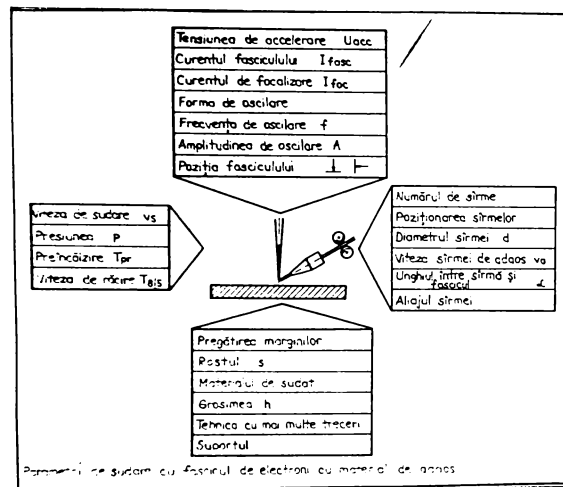 Tensiunea de accelerare Uacc
Curentul fasciculului Ifasc
Curentul de focalizare Ifoc
Forma de oscilare
Frecvența de oscilare f
Amplitudinea de oscilare A
Poziția fasciculului ⊥ ⊢
Viteza de sudare vs
Presiunea p
Preîncălzire Tpr
Viteza de răcire T8/5
Numărul de sîrme
Poziționarea sîrmelor
Diametrul sîrmei d
Viteza sîrmei de adaos va
Unghiul între sîrmă și
fascicul α
Aliajul sîrmei
Pregătirea marginilor
Rostul s
Materialul de sudat
Grosimea h
Tehnica cu mai multe treceri
Suportul
Parametrii de sudare cu fascicul de electroni cu material de adaos